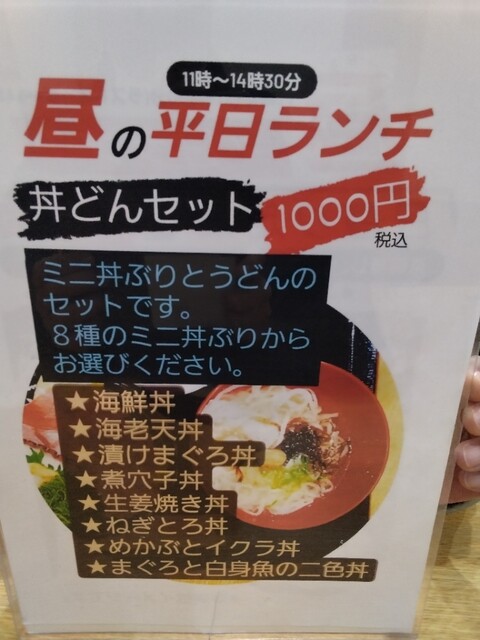 11時～14時30分
昼の平日ランチ
丼どんセット 1000円
税込
ミニ丼ぶりとうどんの
セットです。
8種のミニ丼ぶりから
お選びください。
★海鮮丼
★海老天丼
★漬けまぐろ丼
★煮穴子丼
★生姜焼き丼
★ねぎとろ丼
★めかぶとイクラ丼
★まぐろと白身魚の二色丼